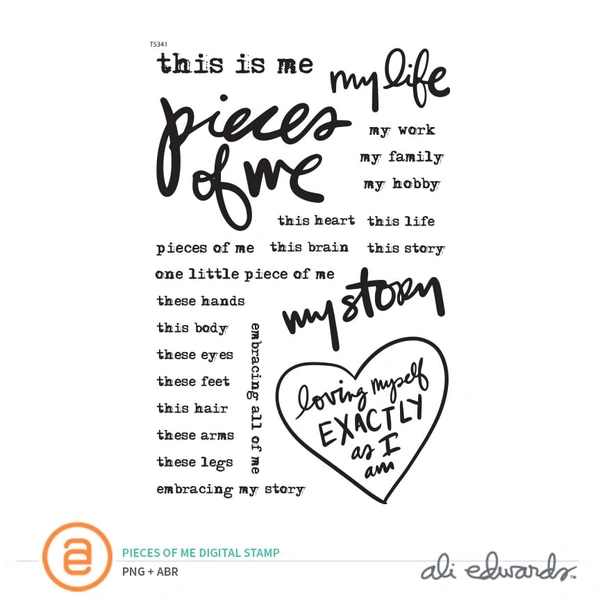 TS341
this is me
my life
pieces
of me
my work
my family
my hobby
this heart this life
pieces of me this brain this story
one little piece of me
these hands
my story
this body
these eyes
these feet
this hair
these arms
these legs
embracing all of me
embracing my story
loving myself
EXACTLY
as I
am
a
PIECES OF ME DIGITAL STAMP
PNG + ABR
ali edwards™